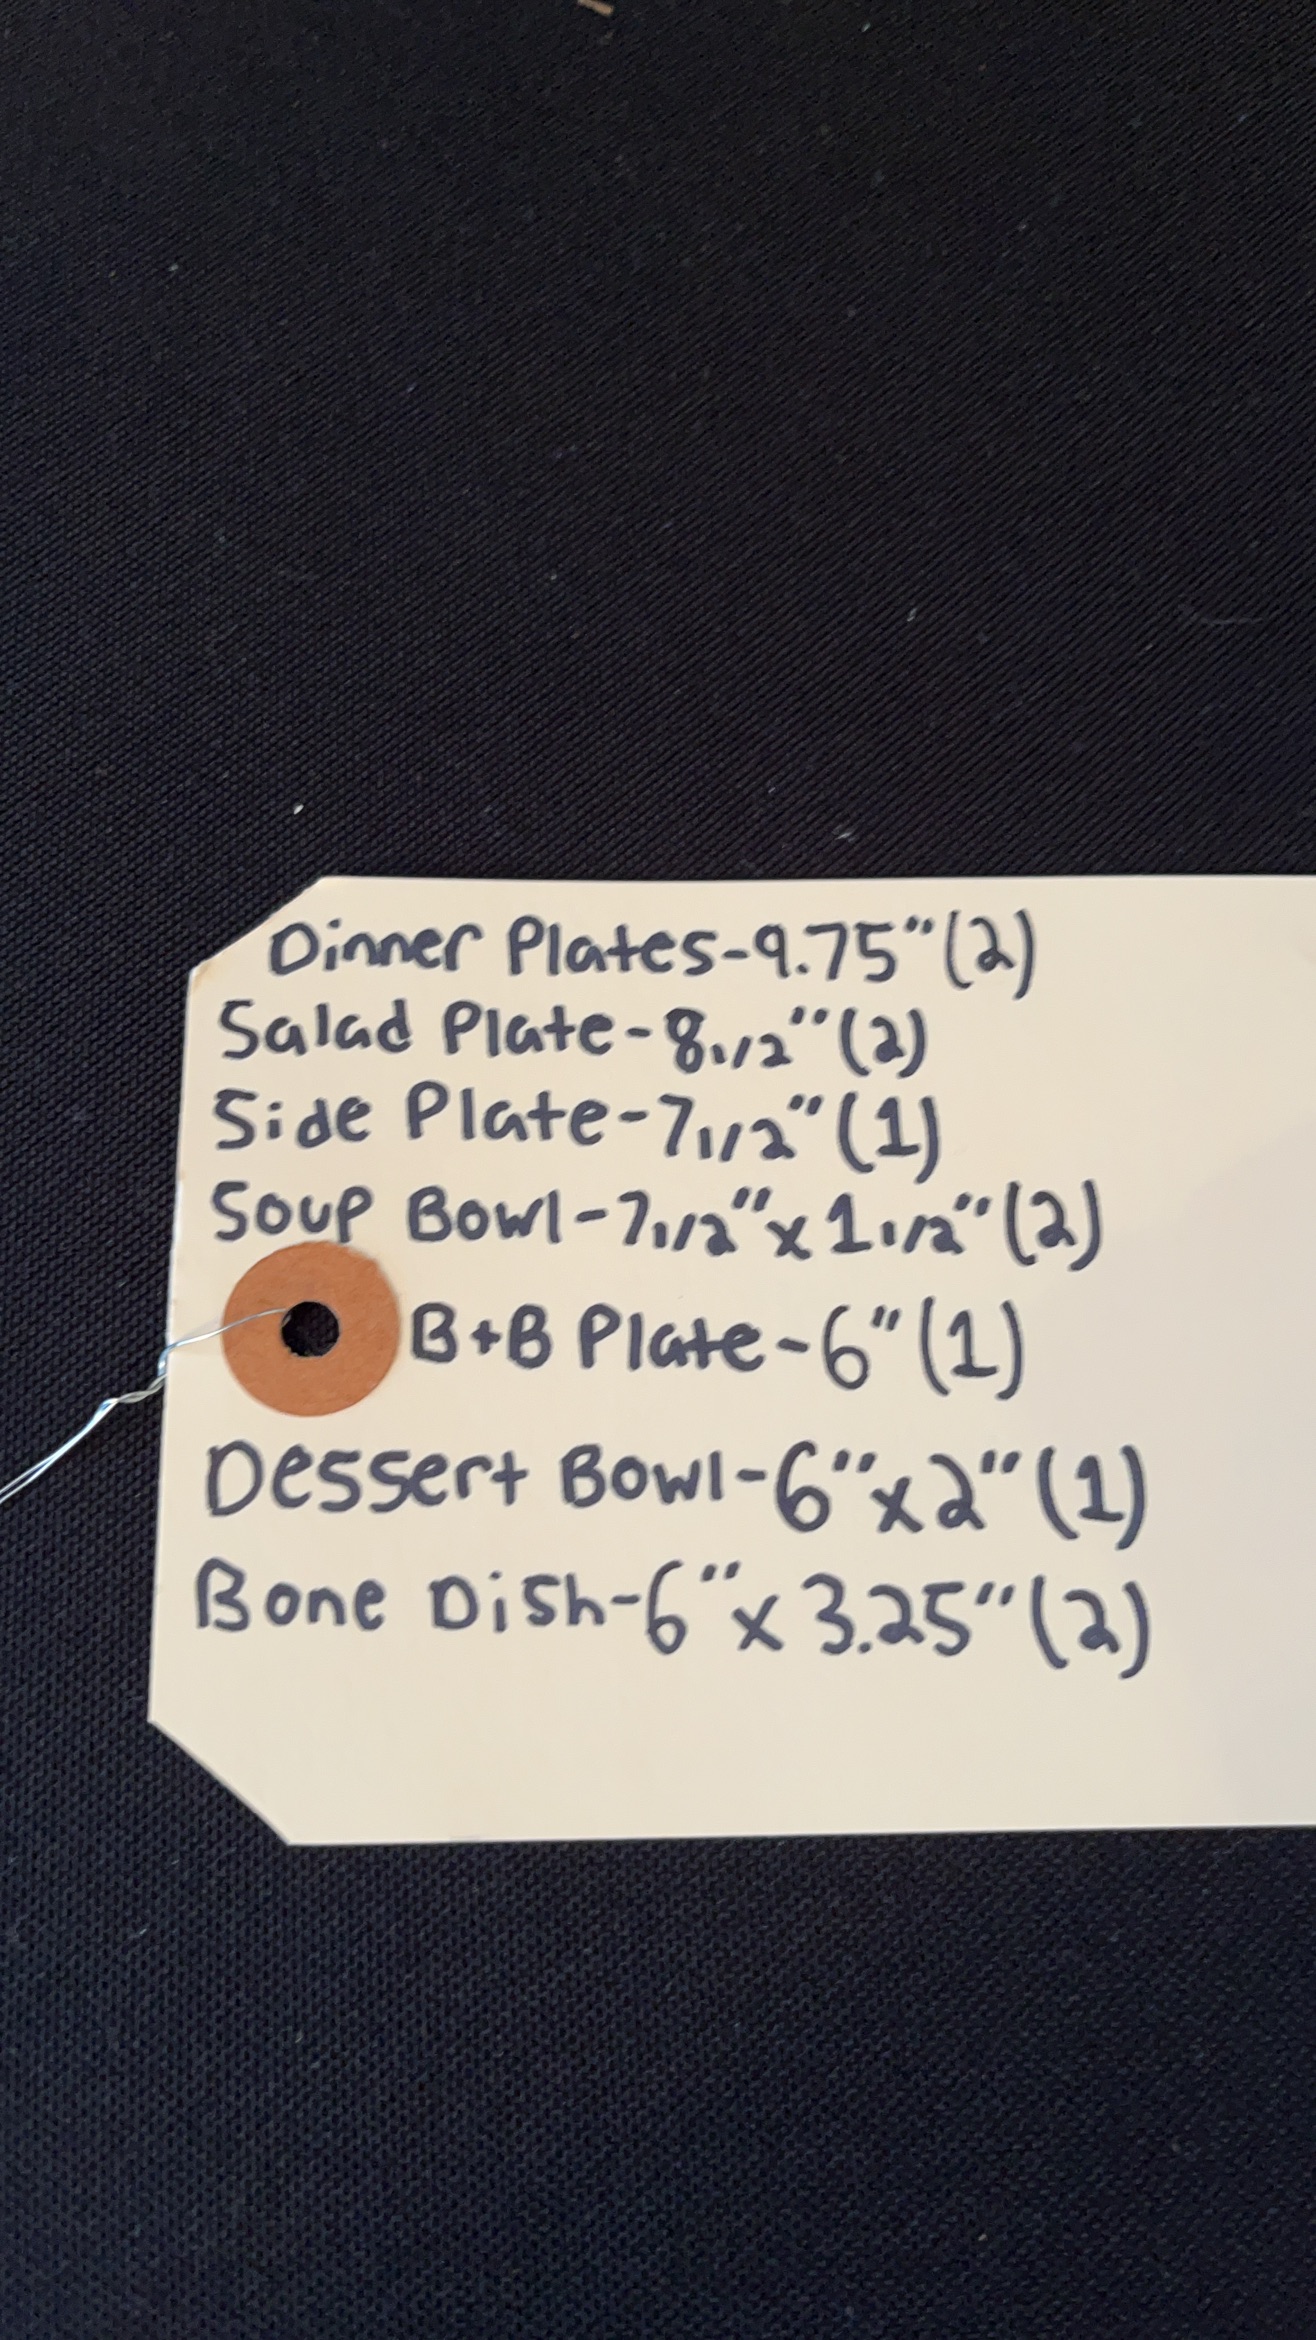 Dinner Plates-9.75"(2)
Salad Plate-8 1/2"(2)
Side Plate-7 1/2"(1)
Soup Bowl-7 1/2"x 1 1/2"(2)
B+B Plate-6"(1)
Dessert Bowl-6"x2"(1)
Bone Dish-6"x 3.25"(2)